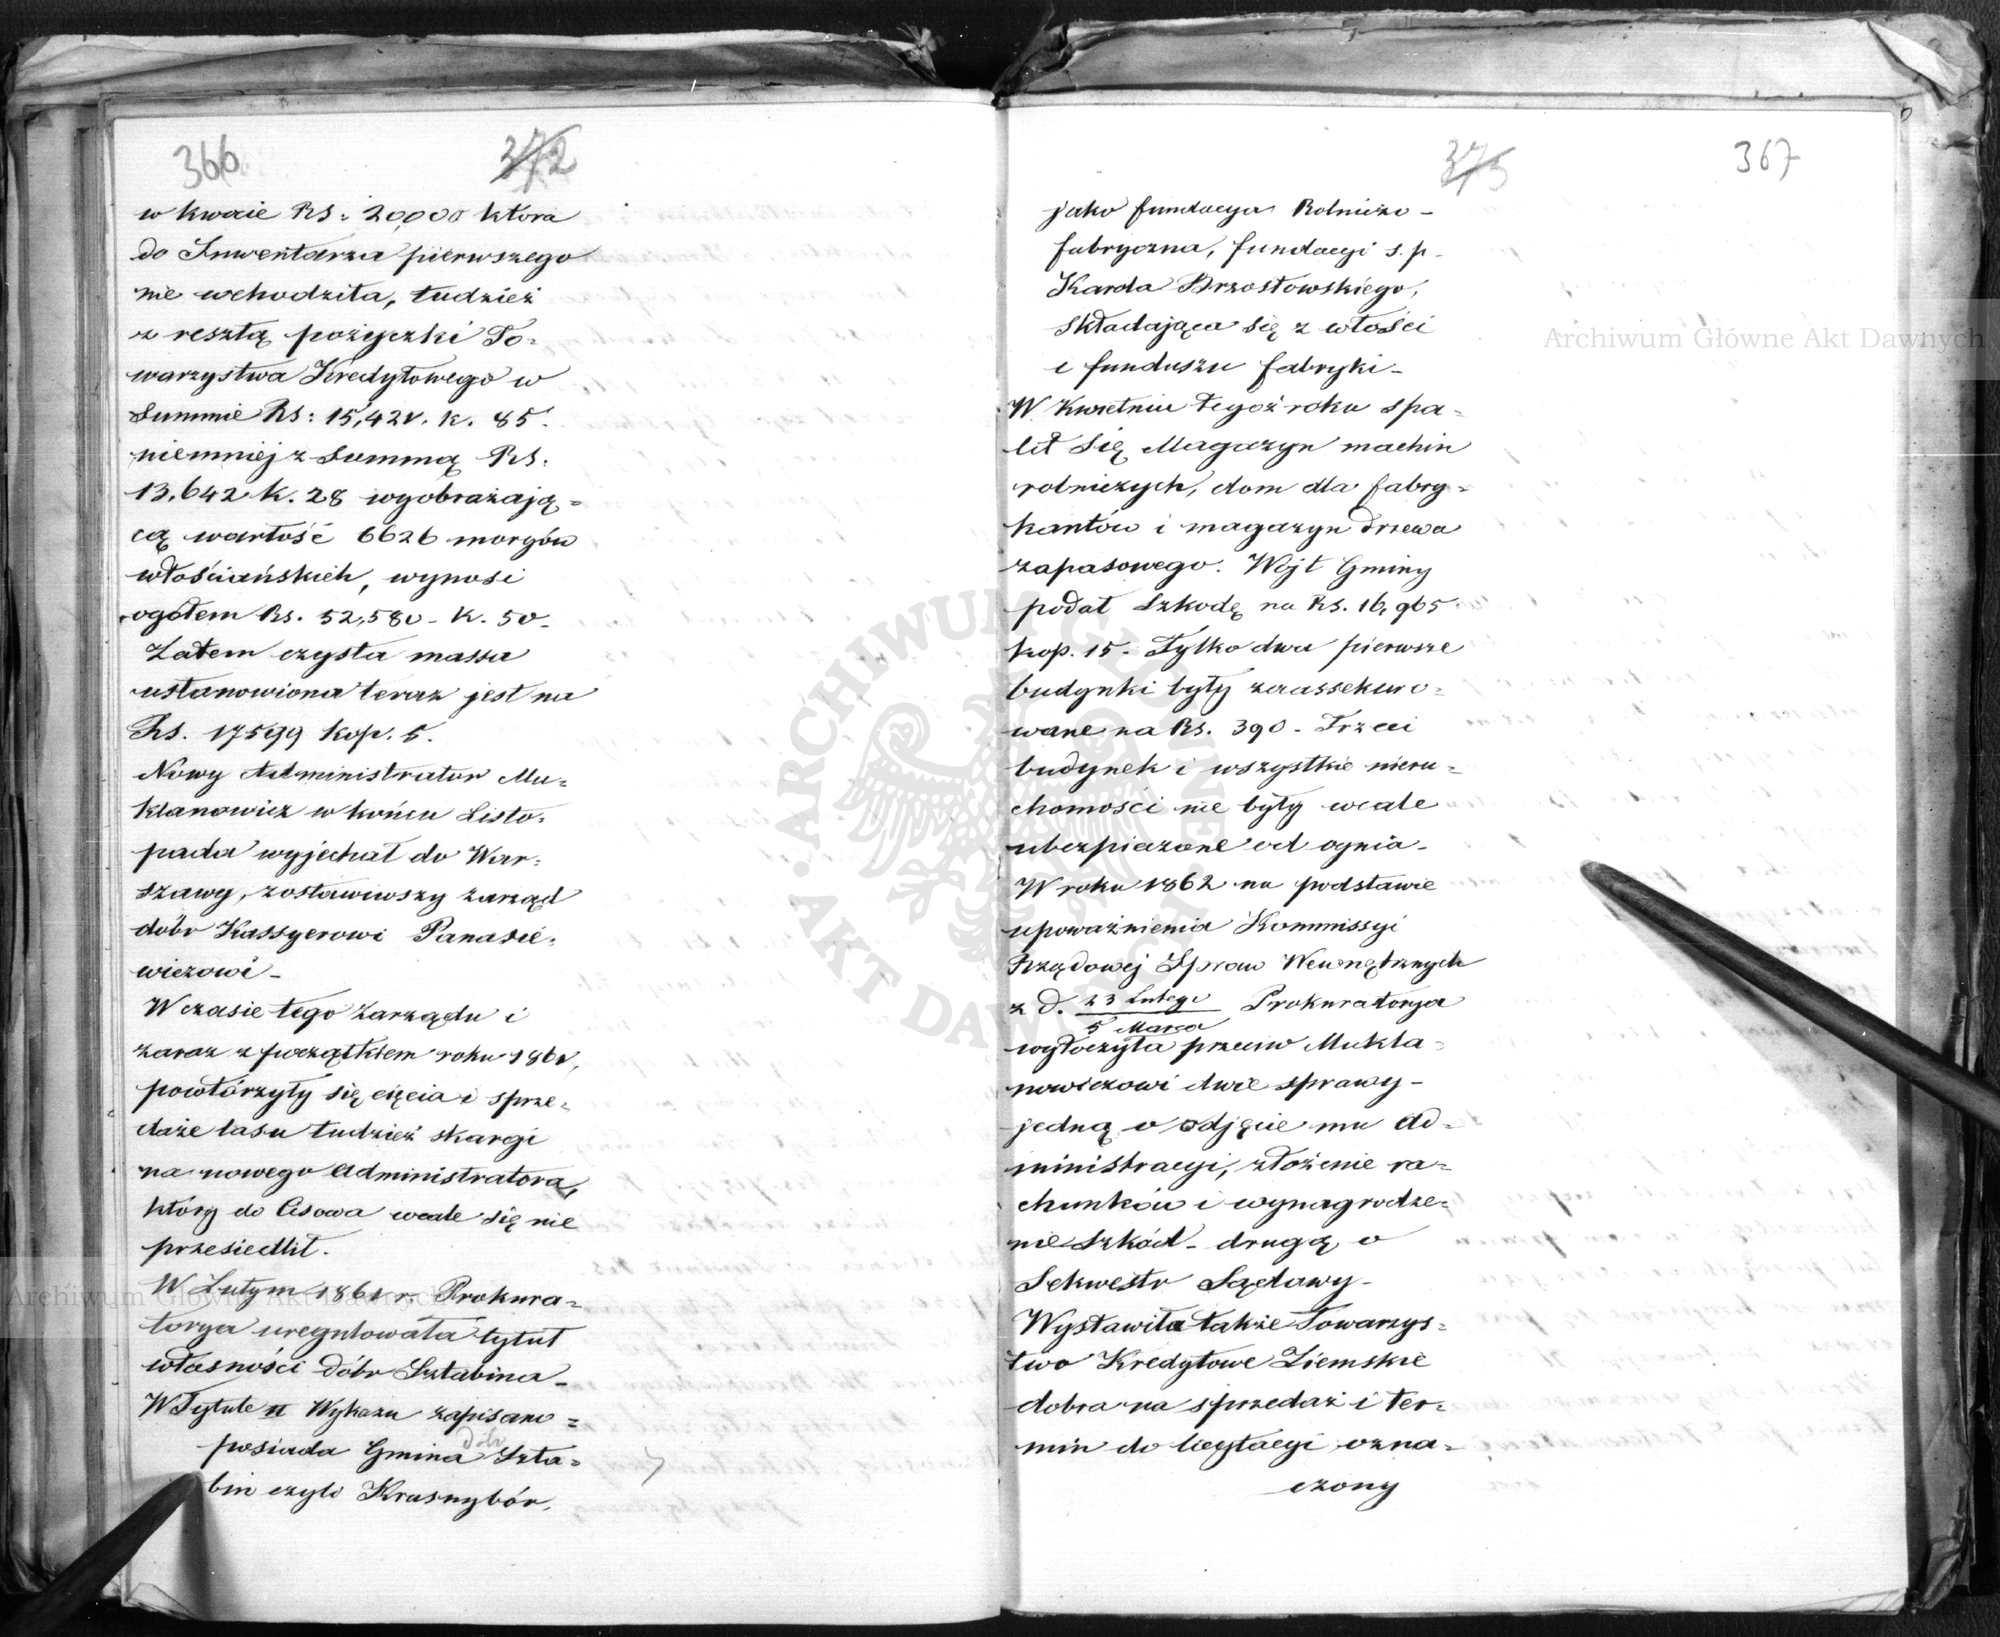 366
372
w kwocie Rs: 20,000 która
do Inwentarza pierwszego
nie wchodziła, tudzież
z resztą pożyczki To-
warzystwa Kredytowego w
Summie Rs: 15,421. k. 85.
niemniej z Summą Rs.
13.642 k. 28 wyobrażają-
cą wartość 6626 morgów
włościańskich, wynosi
ogółem Rs. 52,580 - k. 50 -
Zatem czysta massa
ustanowiona teraz jest na
Rs. 17599 kop. 5.
Nowy Administrator Mu-
klanowicz w końcu Listo-
pada wyjechał do War-
szawy, zostawiwszy zarząd
dóbr Kassyerowi Panasie-
wiczowi -
W czasie tego Zarządu i
zaraz z początkiem roku 1861,
powtórzyły się cięcia i sprze-
daże lasu tudzież skargi
na nowego Administratora,
który do Cisowa wcale się nie
przesiedlił.
W Lutym 1861 r Prokura-
torya uregulowała tytuł
własności dóbr Sztabina -
W Tytule II Wykazu zapisano =
dóbr
posiada Gmina Szta-
bin czyli Krasnybór,
375
367
jako fundacya Rolniczo -
fabryczna, fundacyi s. p.
Karola Brzostowskiego,
składająca się z włości
i funduszu fabryki -
W Kwietniu tegoż roku spa-
lił się Magazyn machin
rolniczych, dom dla fabry-
kantów i magazyn drzewa
zapasowego. Wójt Gminy
podał Szkodę na Rs. 16,965
kop. 15. Tylko dwa pierwsze
budynki były zaassekuro-
wane na Rs. 390 - Trzeci
budynek i wszystkie nieru-
chomości nie były wcale
ubezpieczone od ognia -
W roku 1862 na podstawie
upoważnienia Kommissyi
Rządowej Spraw Wewnętrznych
z d. 23 Lutego / 5 Marca Prokuratorya
wytoczyła przeciw Mukła-
nowiczowi dwie sprawy -
jedną o odjęcie mu Ad-
ministracyi, złożenie ra-
chunków i wynagrodze-
nie Szkód - drugą o
Sekwestr Sądowy -
Wystawiła także Towarzys-
two Kredytowe Ziemskie
dobra na sprzedaż i ter-
min do licytacyi ozna-
czony
Archiwum Główne Akt Dawnych
Archiwum Główne Akt Dawnych
ARCHIWUM GŁÓWNE AKT DAWNYCH